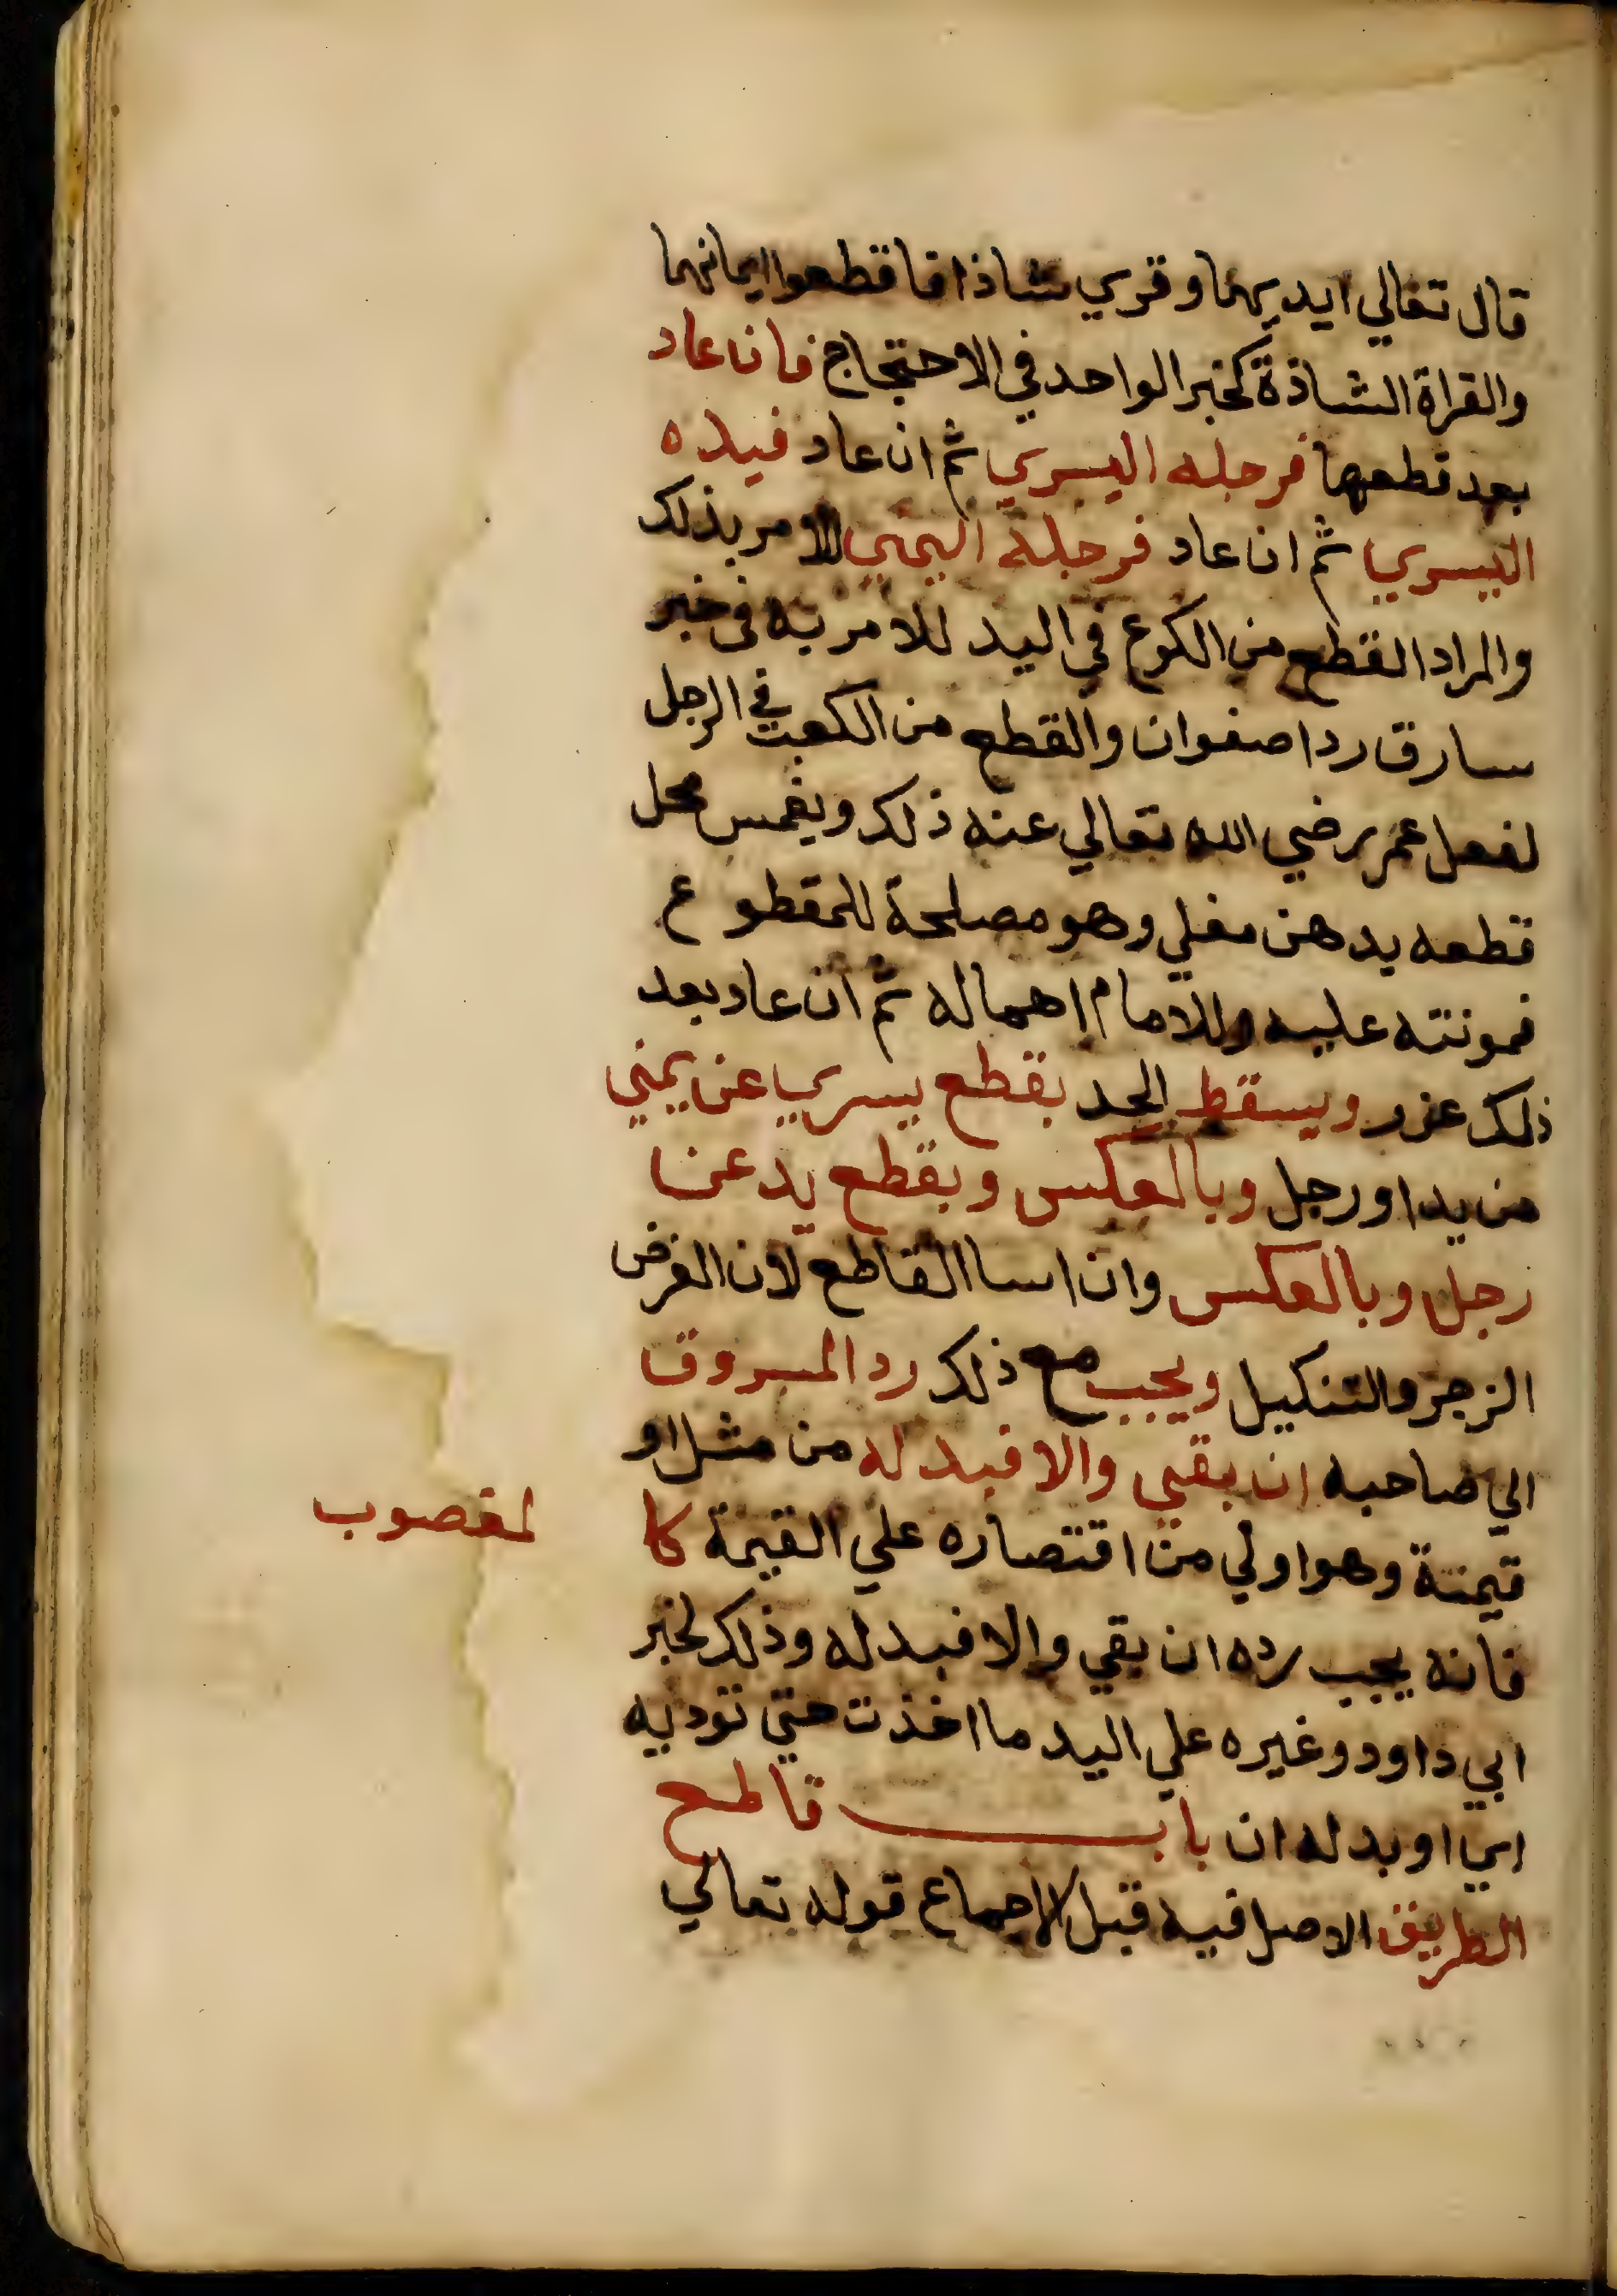 قال تعالي ايديهما وقري شاذا فاقطعوا ايمانهما
والقراة الشاذة كخبر الواحد في الاحتجاج فان عاد
بعد قطعها فرجله اليسري ثم ان عاد فيده
اليسري ثم ان عاد فرجله اليمني للامر بذلك
والمراد القطع من الكوع في اليد للامر به في خبر
سارق ردا صفوان والقطع من الكعب في الرجل
لفعل عمر رضي الله تعالي عنه ذلك ويغمس محل
قطعه بدهن مغلي وهو مصلحة للمقطوع
فمونته عليه وللامام إهماله ثم ان عاد بعد
ذلك عزر ويسقط الحد بقطع يسري عن يمني
من يد او رجل وبالعكس وبقطع يد عن
رجل وبالعكس وان اسا القاطع لان الغرض
الزجر والتنكيل ويجب مع ذلك رد المسروق
الي صاحبه ان بقي والا فبدله من مثل او
قيمتة وهو اولي من اقتصاره علي القيمة كا
لمغصوب
فانه يجب رده ان بقي والا فبدله وذلك لخبر
ابي داود وغيره علي اليد ما اخذت حتي توديه
اي او بدله ان باب قاطع
الطريق الاصل فيه قبل الاجماع قوله تعالي